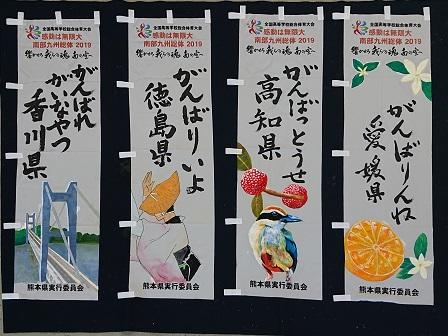 全国高等学校総合体育大会
感動は無限大
南部九州総体 2019
響かせろ 我らの魂 南の空へ
がんばれ
がいなやつ
香川県
熊本県実行委員会
全国高等学校総合体育大会
感動は無限大
南部九州総体 2019
響かせろ 我らの魂 南の空へ
がんばりいよ
徳島県
熊本県実行委員会
全国高等学校総合体育大会
感動は無限大
南部九州総体 2019
響かせろ 我らの魂 南の空へ
がんばっとうせ
高知県
熊本県実行委員会
全国高等学校総合体育大会
感動は無限大
南部九州総体 2019
響かせろ 我らの魂 南の空へ
がんばりんね
愛媛県
熊本県実行委員会